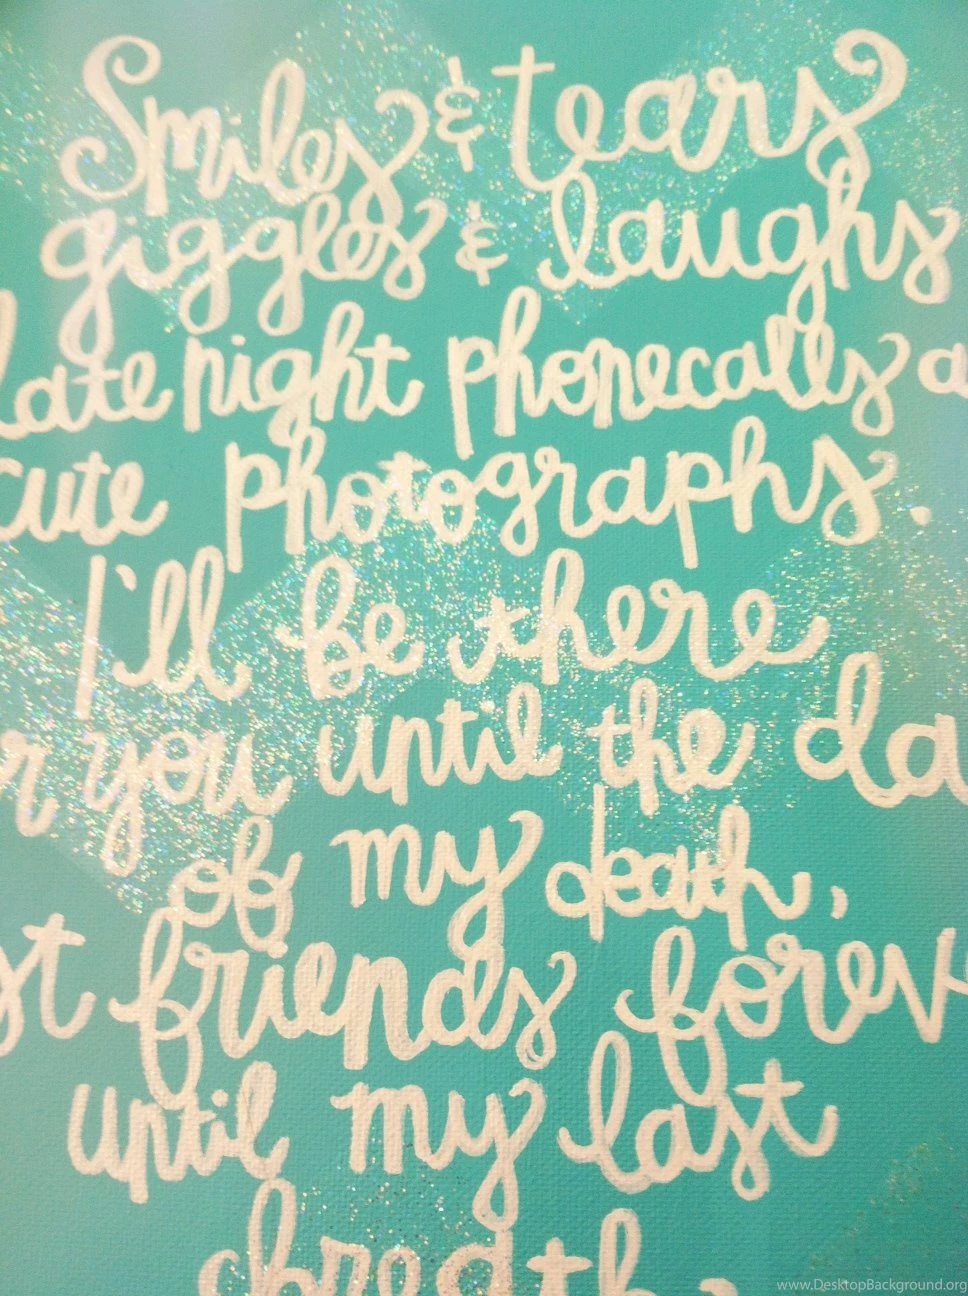 Smiles & tears
giggles & laughs
late night phonecalls a
cute photographs.
I'll be there
r you until the da
of my death,
st friends forev
until my last
breath.
www.DesktopBackground.org